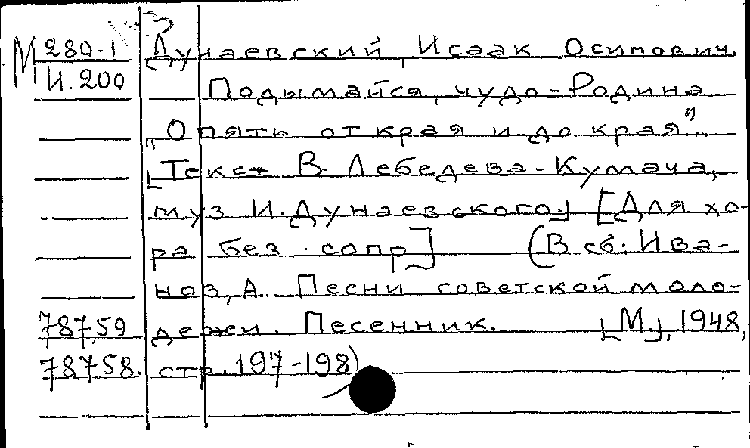 М 280-1 Дунаевский, Исаак Осипович.
И. 200 Подымайся, чудо-Родина
„Опять от края и до края"...
[Текст В. Лебедева-Кумача,
муз И. Дунаевского] [Для хо-
ра без сопр] (В сб: Ива-
нов, А. Песни советской моло-
78759 дежи. Песенник. [М.], 1948,
78758. стр. 197-198)